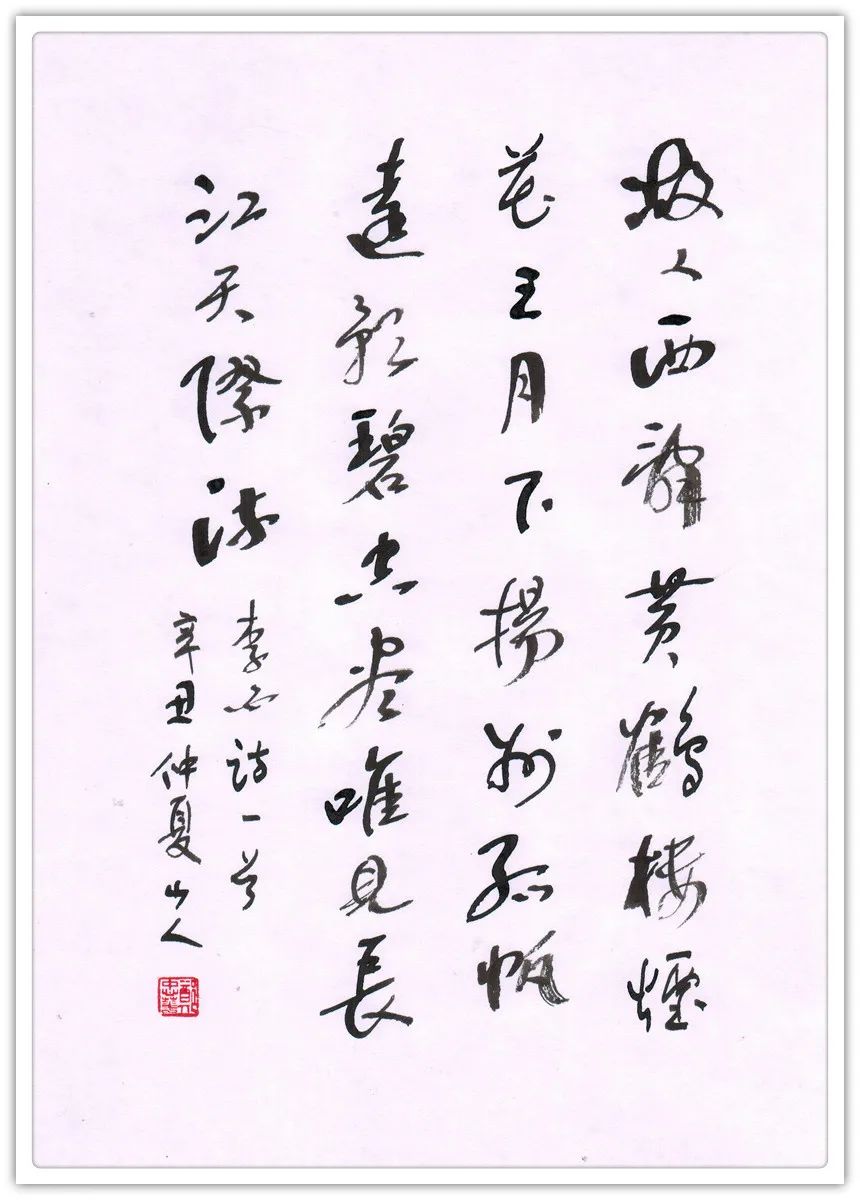 故人西辭黄鶴樓煙
花三月下揚州孤帆
遠影碧空盡唯見長
江天際流
李白詩一首
辛丑仲夏山人